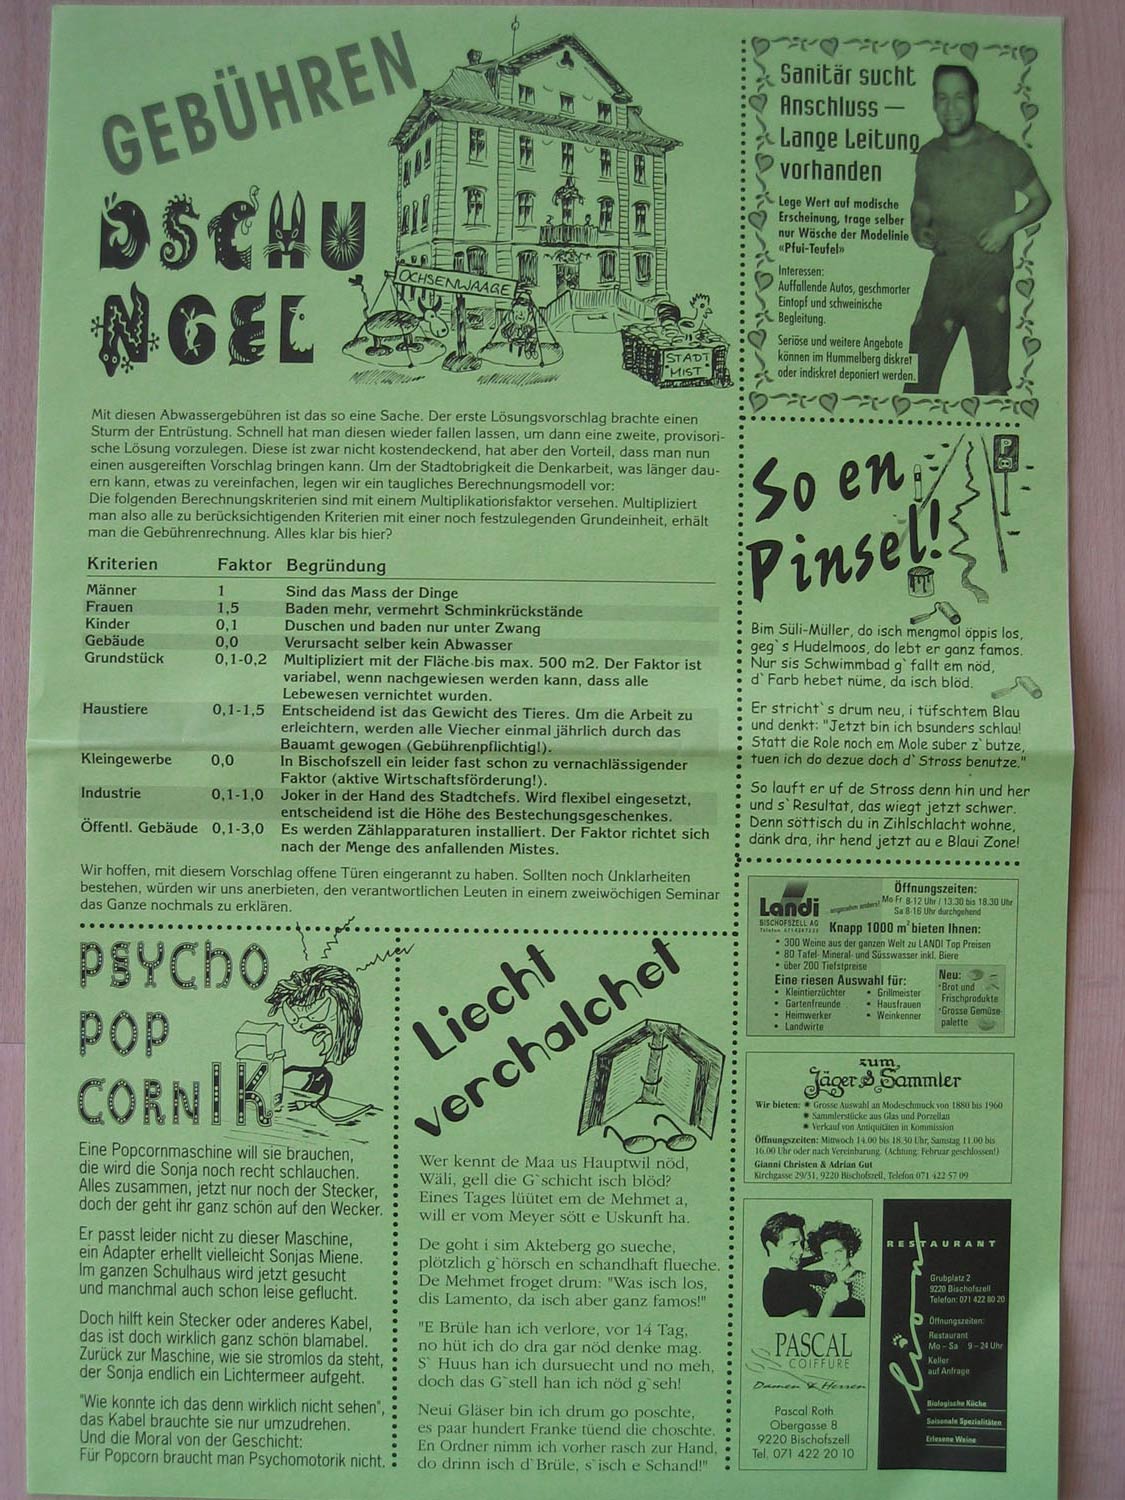 GEBÜHREN
DSCHU
NGEL
OCHSENWAAGE
STADT
MIST
Mit diesen Abwassergebühren ist das so eine Sache. Der erste Lösungsvorschlag brachte einen
Sturm der Entrüstung. Schnell hat man diesen wieder fallen lassen, um dann eine zweite, provisori-
sche Lösung vorzulegen. Diese ist zwar nicht kostendeckend, hat aber den Vorteil, dass man nun
einen ausgereiften Vorschlag bringen kann. Um der Stadtobrigkeit die Denkarbeit, was länger dau-
ern kann, etwas zu vereinfachen, legen wir ein taugliches Berechnungsmodell vor:
Die folgenden Berechnungskriterien sind mit einem Multiplikationsfaktor versehen. Multipliziert
man also alle zu berücksichtigenden Kriterien mit einer noch festzulegenden Grundeinheit, erhält
man die Gebührenrechnung. Alles klar bis hier?
Kriterien Faktor Begründung
Männer 1 Sind das Mass der Dinge
Frauen 1,5 Baden mehr, vermehrt Schminkrückstände
Kinder 0,1 Duschen und baden nur unter Zwang
Gebäude 0,0 Verursacht selber kein Abwasser
Grundstück 0,1-0,2 Multipliziert mit der Fläche bis max. 500 m2. Der Faktor ist
variabel, wenn nachgewiesen werden kann, dass alle
Lebewesen vernichtet wurden.
Haustiere 0,1-1,5 Entscheidend ist das Gewicht des Tieres. Um die Arbeit zu
erleichtern, werden alle Viecher einmal jährlich durch das
Bauamt gewogen (Gebührenpflichtig!).
Kleingewerbe 0,0 In Bischofszell ein leider fast schon zu vernachlässigender
Faktor (aktive Wirtschaftsförderung!).
Industrie 0,1-1,0 Joker in der Hand des Stadtchefs. Wird flexibel eingesetzt,
entscheidend ist die Höhe des Bestechungsgeschenkes.
Öffentl. Gebäude 0,1-3,0 Es werden Zählapparaturen installiert. Der Faktor richtet sich
nach der Menge des anfallenden Mistes.
Wir hoffen, mit diesem Vorschlag offene Türen eingerannt zu haben. Sollten noch Unklarheiten
bestehen, würden wir uns anerbieten, den verantwortlichen Leuten in einem zweiwöchigen Seminar
das Ganze nochmals zu erklären.
PSYCHO
POP
CORNIK
Eine Popcornmaschine will sie brauchen,
die wird die Sonja noch recht schlauchen.
Alles zusammen, jetzt nur noch der Stecker,
doch der geht ihr ganz schön auf den Wecker.
Er passt leider nicht zu dieser Maschine,
ein Adapter erhellt vielleicht Sonjas Miene.
Im ganzen Schulhaus wird jetzt gesucht
und manchmal auch schon leise geflucht.
Doch hilft kein Stecker oder anderes Kabel,
das ist doch wirklich ganz schön blamabel.
Zurück zur Maschine, wie sie stromlos da steht,
der Sonja endlich ein Lichtermeer aufgeht.
"Wie konnte ich das denn wirklich nicht sehen",
das Kabel brauchte sie nur umzudrehen.
Und die Moral von der Geschicht:
Für Popcorn braucht man Psychomotorik nicht.
Liecht
verchalchet
Wer kennt de Maa us Hauptwil nöd,
Wäli, gell die G`schicht isch blöd?
Eines Tages lüütet em de Mehmet a,
will er vom Meyer sött e Uskunft ha.
De goht i sim Akteberg go sueche,
plötzlich g`hörsch en schandhaft flueche.
De Mehmet froget drum: "Was isch los,
dis Lamento, da isch aber ganz famos!"
"E Brüle han ich verlore, vor 14 Tag,
no hüt ich do dra gar nöd denke mag.
S` Huus han ich dursuecht und no meh,
doch das G`stell han ich nöd g`seh!
Neui Gläser bin ich drum go poschte,
es paar hundert Franke tüend die choschte.
En Ordner nimm ich vorher rasch zur Hand,
do drinn isch d`Brüle, s`isch e Schand!"
Sanitär sucht
Anschluss –
Lange Leitung
vorhanden
Lege Wert auf modische
Erscheinung, trage selber
nur Wäsche der Modelinie
«Pfui-Teufel»
Interessen:
Auffallende Autos, geschmorter
Eintopf und schweinische
Begleitung.
Seriöse und weitere Angebote
können im Hummelberg diskret
oder indiskret deponiert werden.
So en
Pinsel!
P
Bim Süli-Müller, do isch mengmol öppis los,
geg`s Hudelmoos, do lebt er ganz famos.
Nur sis Schwimmbad g`fallt em nöd,
d`Farb hebet nüme, da isch blöd.
Er stricht`s drum neu, i tüfschtem Blau
und denkt: "Jetzt bin ich bsunders schlau!
Statt die Role noch em Mole suber z`butze,
tuen ich do dezue doch d`Stross benutze."
So lauft er uf de Stross denn hin und her
und s`Resultat, das wiegt jetzt schwer.
Denn söttisch du in Zihlschlacht wohne,
dänk dra, ihr hend jetzt au e Blaui Zone!
Landi
angenehm anders!
BISCHOFSZELL AG
Öffnungszeiten:
Mo Fr 8-12 Uhr / 13.30 bis 18.30 Uhr
Sa 8-16 Uhr durchgehend
Knapp 1000 m² bieten Ihnen:
• 300 Weine aus der ganzen Welt zu LANDI Top Preisen
• 80 Tafel- Mineral- und Süsswasser inkl. Biere
• über 200 Tiefstpreise
Eine riesen Auswahl für:
• Kleintierzüchter
• Gartenfreunde
• Heimwerker
• Landwirte
• Grillmeister
• Hausfrauen
• Weinkenner
Neu:
·Brot und
Frischprodukte
·Grosse Gemüse
palette
zum
Jäger & Sammler
Wir bieten: ✷ Grosse Auswahl an Modeschmuck von 1880 bis 1960
✷ Sammlerstücke aus Glas und Porzellan
✷ Verkauf von Antiquitäten in Kommission
Öffnungszeiten: Mittwoch 14.00 bis 18.30 Uhr, Samstag 11.00 bis
16.00 Uhr oder nach Vereinbarung. (Achtung: Februar geschlossen!)
Gianni Christen & Adrian Gut
Kirchgasse 29/31, 9220 Bischofszell, Telefon 071 422 57 09
PASCAL
COIFFURE
Damen & Herren
Pascal Roth
Obergasse 8
9220 Bischofszell
Tel. 071 422 20 10
RESTAURANT
lion
Grubplatz 2
9220 Bischofszell
Telefon: 071 422 80 20
Öffnungszeiten:
Restaurant
Mo – Sa 9 – 24 Uhr
Keller
auf Anfrage
Biologische Küche
Saisonale Spezialitäten
Erlesene Weine